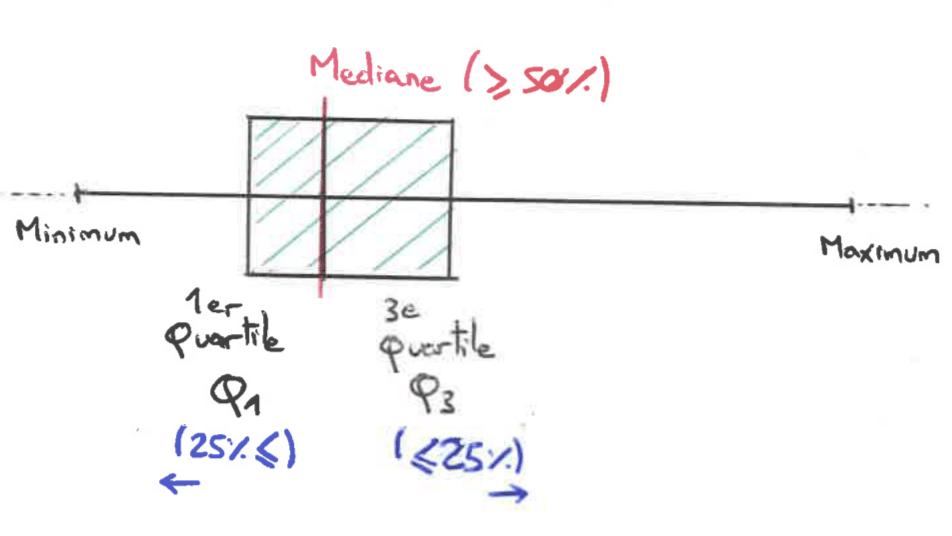 Mediane (⩾ 50%)
Minimum
Maximum
1er
Quartile
Q1
(25% ⩽)
←
3e
quartile
Q3
(⩽ 25%)
→